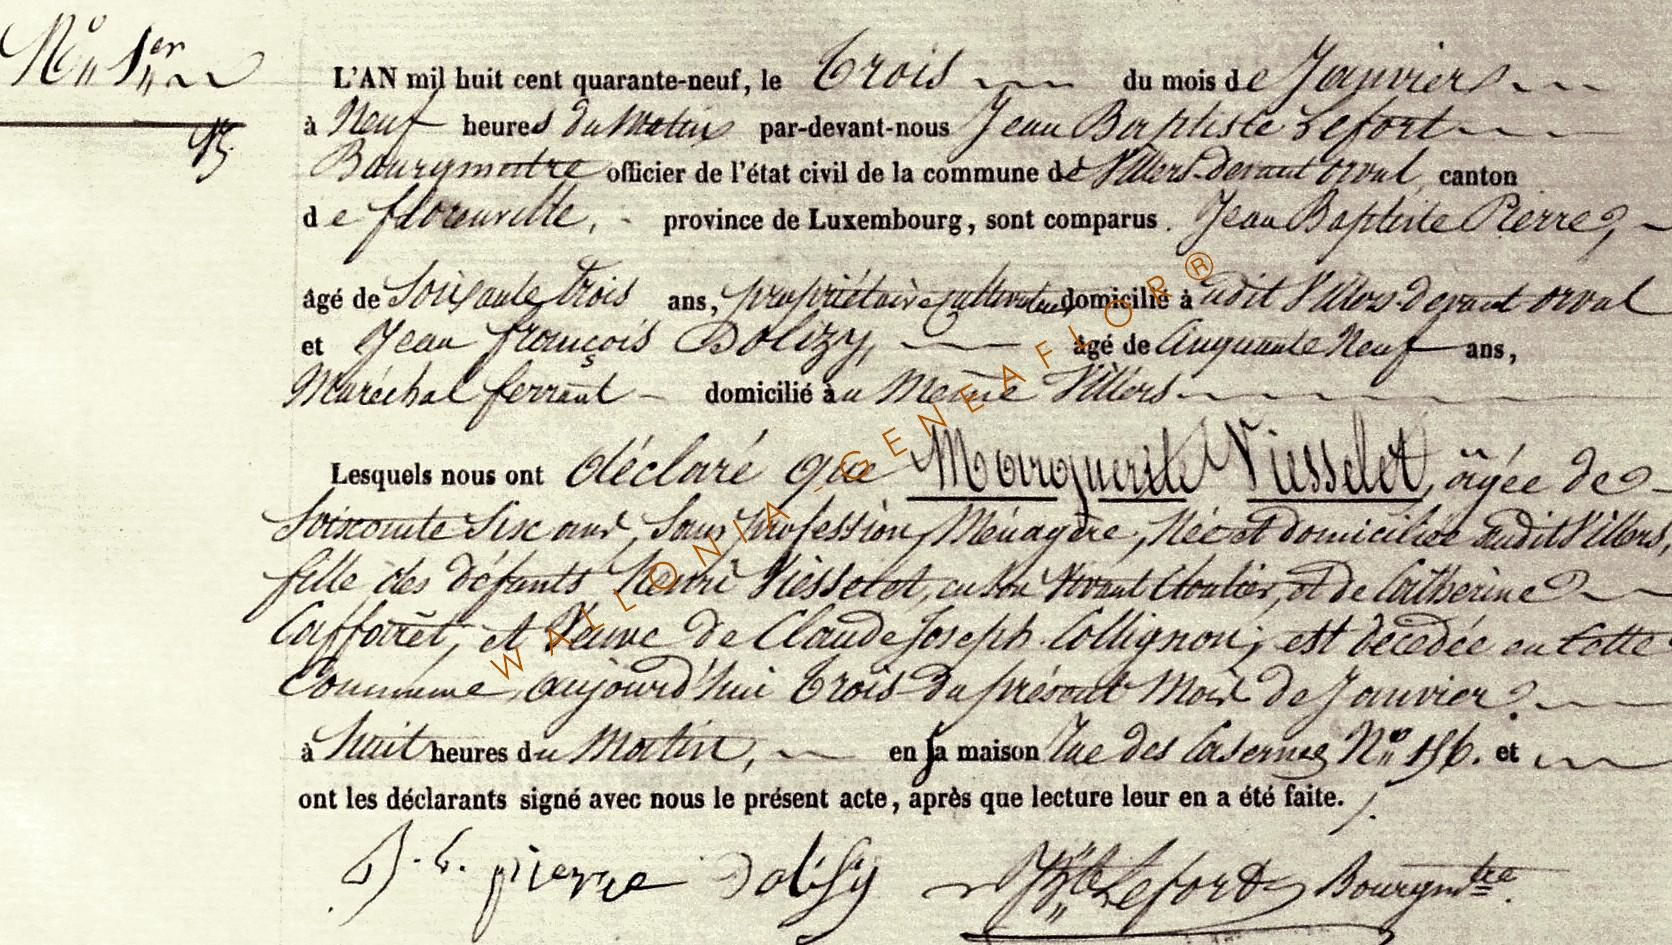 N° 1er
L'AN mil huit cent quarante-neuf, le Trois du mois de Janvier
à Neuf heures du Matin par-devant-nous Jean Baptiste Lefort
Bourgmestre officier de l'état civil de la commune de Villers-devant orval, canton
de florenville, province de Luxembourg, sont comparus Jean Baptiste Pierre,
âgé de Soixante trois ans, propriétaire cultivateur domicilié à udit Villers-devant orval
et Jean françois Dolizy, âgé de Cinquante Neuf ans,
Maréchal ferrant domicilié au Même Villers
Lesquels nous ont déclaré que Marguerite Viesselet, âgée de
Soixante Six ans, Sans profession, Ménagère, Née et domiciliée audit Villers,
fille des défunts Henri Viesselet, en Son Vivant Cloutier, et de Catherine
Caffaret, et Veuve de Claude Joseph Collignon, est décédée en Cette
Commune, aujourd'hui Trois du présent Mois de Janvier
à huit heures du Matin, en sa maison Rue des Casernes N° 156. et
ont les déclarants signé avec nous le présent acte, après que lecture leur en a été faite.
J. b. pierre Dolisy JBte Lefort Bourgmtre.
WALLONIA-GENEAFLOR®